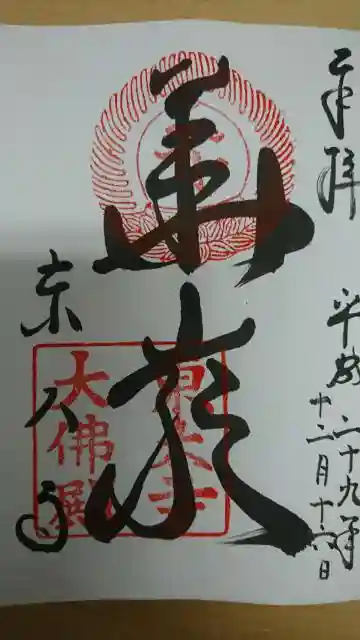 奉拝
平成二十九年
十二月十六日
華厳
東大寺
東大寺
大佛殿